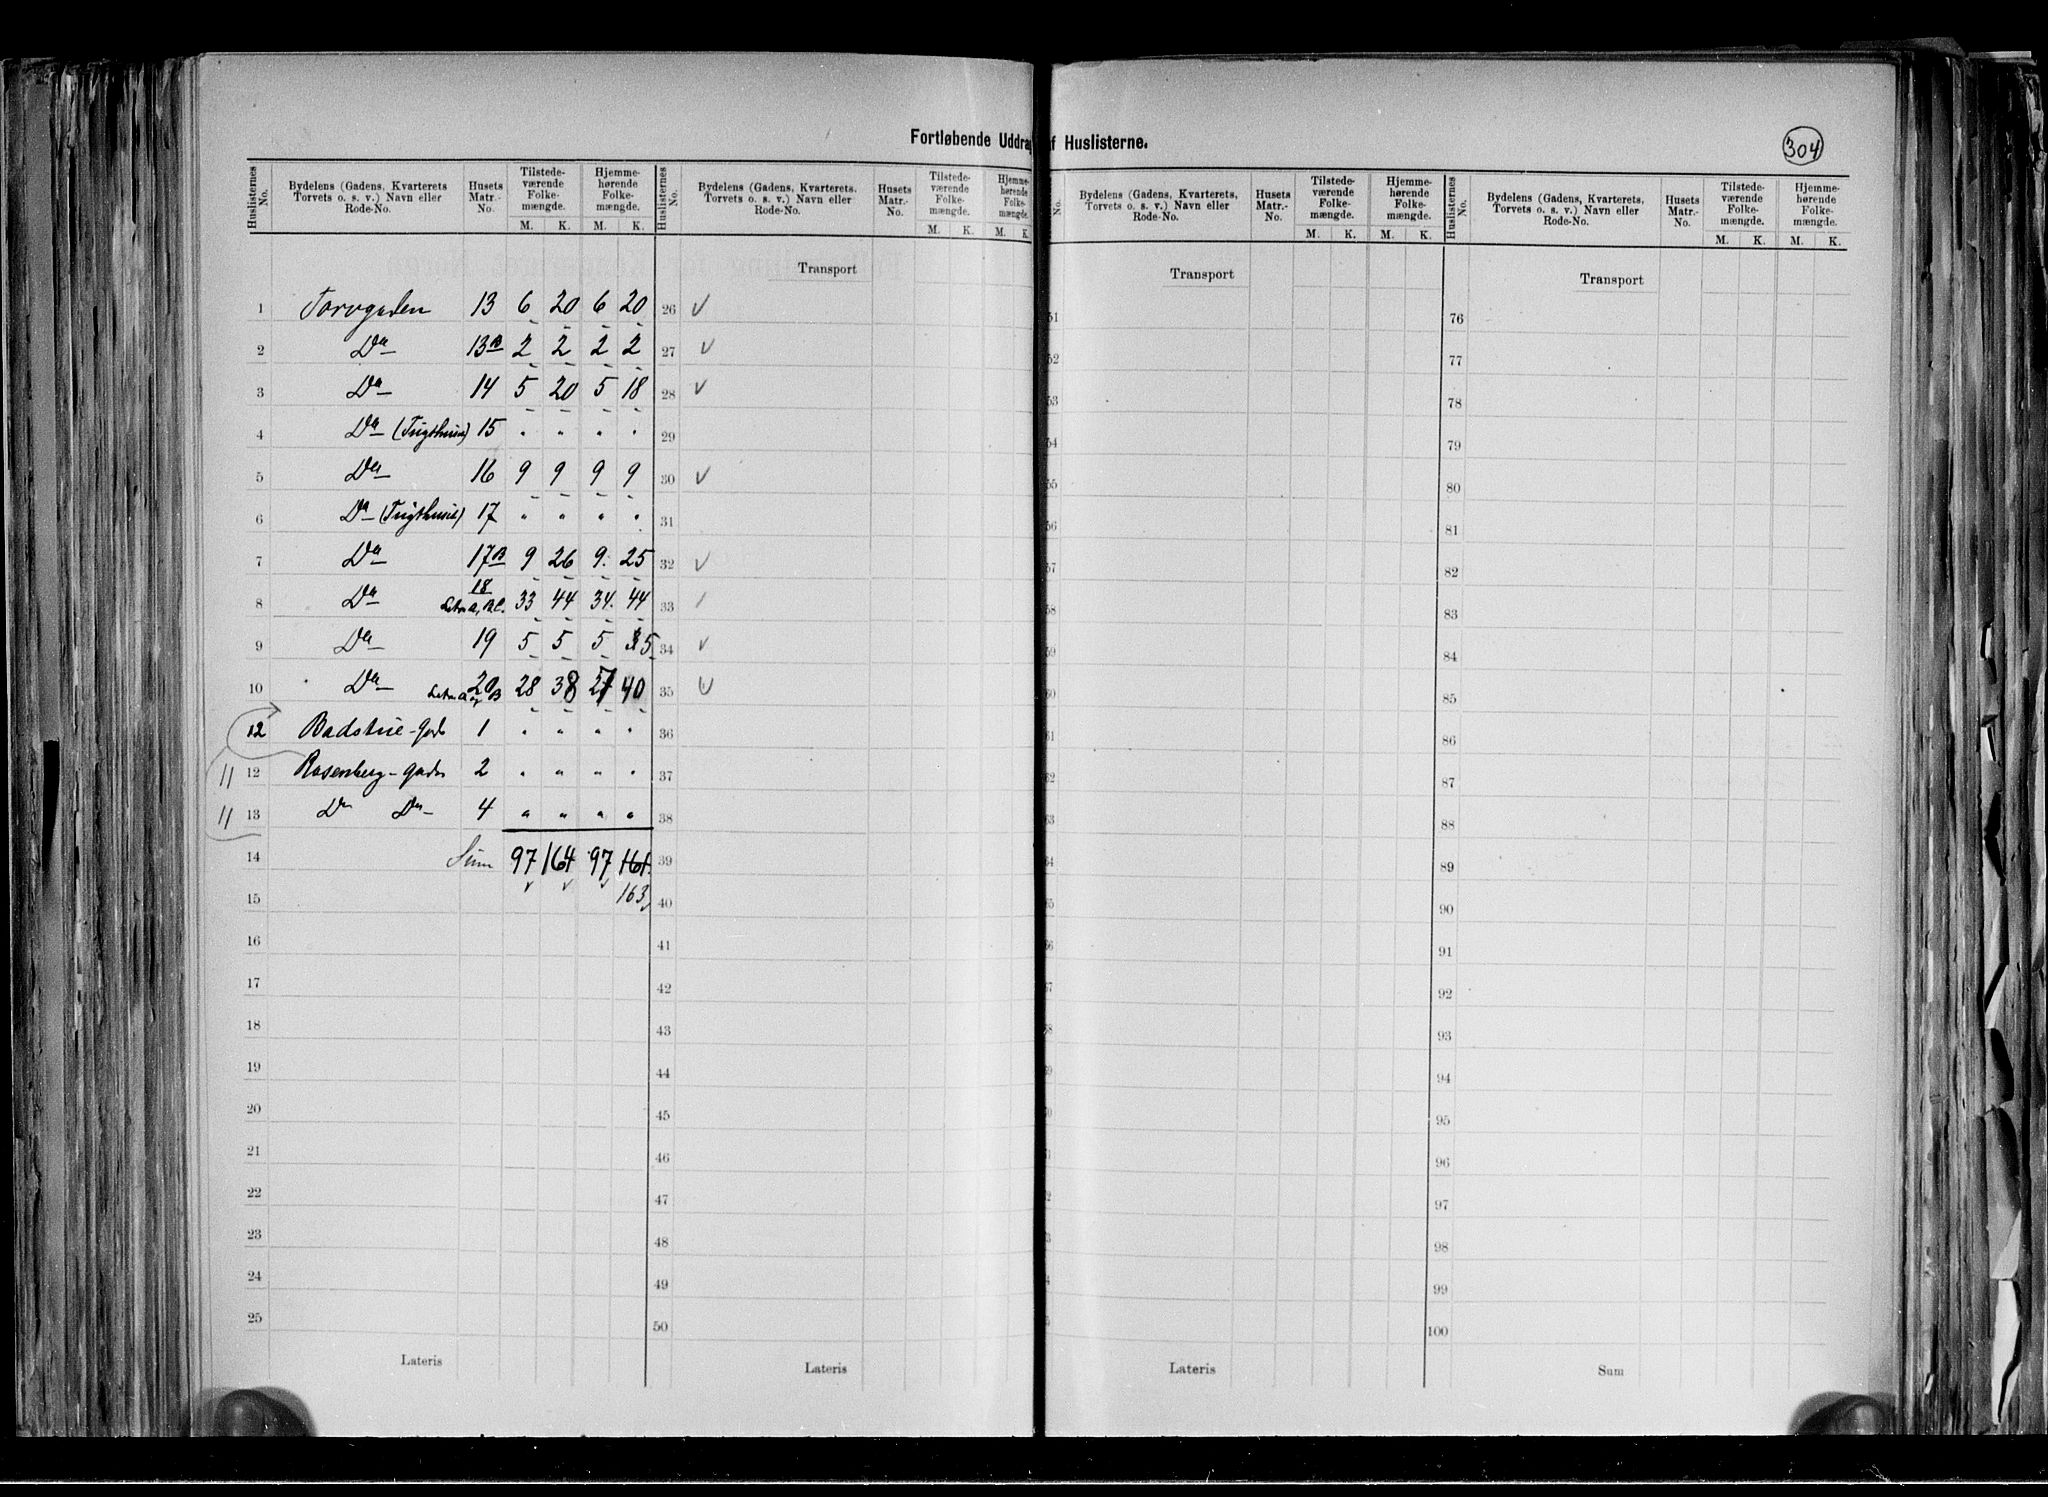 Fortløbende Uddra f Huslisterne.
304
Huslisternes No. Bydelens (Gadens, Kvarterets Torvets o. s. v.) Navn eller Rode-No. Husets Matr.-No. Tilstede-værende Folke-mængde. M. K. Hjemme-hørende Folke-mængde. M. K.
Huslisternes No. Bydelens (Gadens, Kvarterets, Torvets o. s. v.) Navn eller Rode-No. Husets Matr.-No. Tilstede-værende Folke-mængde. M. K. Hjemme-hørende Folke-mængde. M. K.
No. Bydelens (Gadens, Kvarterets, Torvets o. s. v.) Navn eller Rode-No. Husets Matr.-No. Tilstede-værende Folke-mængde. M. K. Hjemme-hørende Folke-mængde. M. K.
Huslisternes No. Bydelens (Gadens, Kvarterets, Torvets o. s. v.) Navn eller Rode-No. Husets Matr.-No. Tilstede-værende Folke-mængde. M. K. Hjemme-hørende Folke-mængde. M. K.
Transport Transport Transport
1 Torvgaden 13 6 20 6 20 26 51 76
2 Do 13B 2 2 2 2 27 52 77
3 Do 14 5 20 5 18 28 53 78
4 Do (Tugthuset) 15 " " " " 29 54 79
5 Do 16 9 9 9 9 30 55 80
6 Do (Tugthuset) 17 " " " " 31 56 81
7 Do 17B 9 26 9 25 32 57 82
8 Do 18 Litra A, B C. 33 44 34 44 33 58 83
9 Do 19 5 5 5 5 34 59 84
10 Do 20 Litra A og B 28 38 27 40 35 60 85
12 Badstue-Gade 1 " " " " 36 86
11 12 Rosenberg-Gade 2 " " " " 37 62 87
11 13 Do Do 4 " " " " 38 63 88
14 Sum 97 164 97 161 39 64 89
15 163 40 65 90
16 41 66 91
17 42 67 92
18 43 68 93
19 44 69 94
20 45 95
21 46 96
22 47 97
23 48 98
24 49 99
25 50 100
Lateris Lateris Lateris Sum